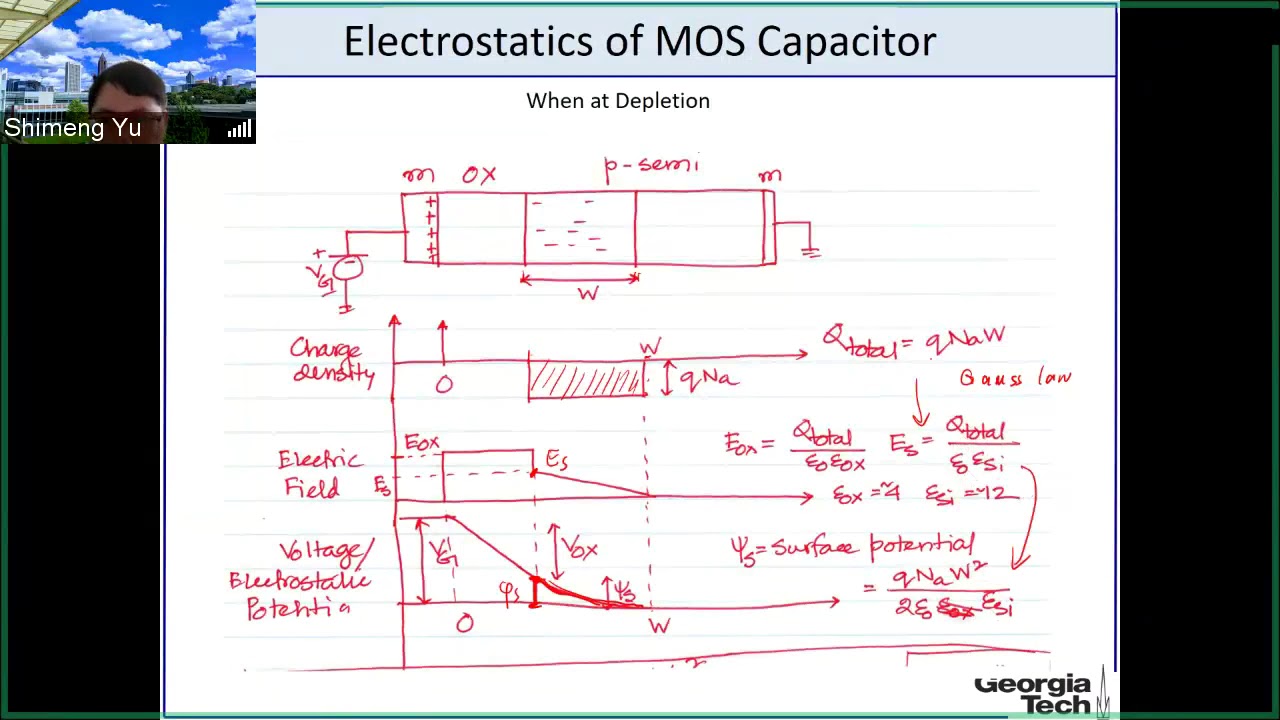 Electrostatics of MOS Capacitor
Shimeng Yu
When at Depletion
m OX p-semi m
+ + + + +
- - - - - - - - -
+ -
VG
W
Charge density
0
W
qNa
Qtotal = qNaW
Gauss law
Electric Field
Eox
Es
Es
Eox = Qtotal / ε0εox
Es = Qtotal / ε0εsi
εox = ~4 εsi = ~12
Voltage/ Electrostatic Potentia
VG
Vox
φs
ψs
0
W
ψs = surface potential
= qNaW² / 2ε0 εox εsi
Georgia
Tech